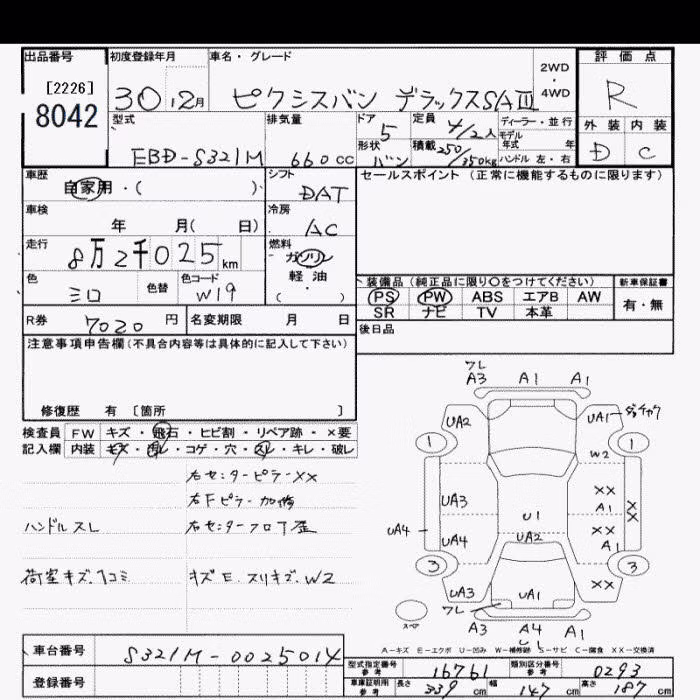 出品番号
[2226]
8042
初度登録年月
30 12月
車名・グレード
ピクシスバン デラックスSAⅢ
2WD
・
4WD
評価点
R
外装 内装
D C
型式
EBD-S321M
排気量
660cc
ドア
5
形状
バン
定員
4/2人
積載
250/350kg
ディーラー・並行
モデル
年式 年
ハンドル 左・右
車歴
自家用・( )
シフト
DAT
セールスポイント (正常に機能するものに限ります)
車検
年 月( 日)
冷房
AC
走行
8万2千025km
燃料
ガソリン
軽油
・
( )
色
ミロ
色替
色コード
W19
装備品 (純正品に限り○をつけてください)
新車保証書
PS PW ABS エアB AW
有・無
SR ナビ TV 本革
R券 7020 円
名変期限 月 日
後日品
注意事項申告欄(不具合内容等は具体的に記入して下さい)
修復歴 有 〔箇所 〕
検査員 FW キズ・飛石・ヒビ割・リペア跡・×要
記入欄 内装 キズ・汚レ・コゲ・穴・スレ・キレ・破レ
右センターピラーXX
右Fピラー加修
ハンドルスレ
右センターフロア歪
荷室キズ.凹コミ
キズE.スリキズ.W2
ワレ
A3 A1 A1
UA2
UA1
1
1
W2
XX
UA3
A1
X
X
U1
UA4
UA4
UA2
XX
A1
3
3
XX
UA3
UA1
ワレ
スペア
A3 A4 A1
U1
A-キズ E-エクボ U-凹み W-補修跡 S-サビ C-腐食 XX-交換済
車台番号
S321M-0025014
登録番号
型式指定番号
参考
16761
類別区分番号
参考
0293
車庫証明用
参考
長さ
339cm
幅
147cm
高さ
187cm